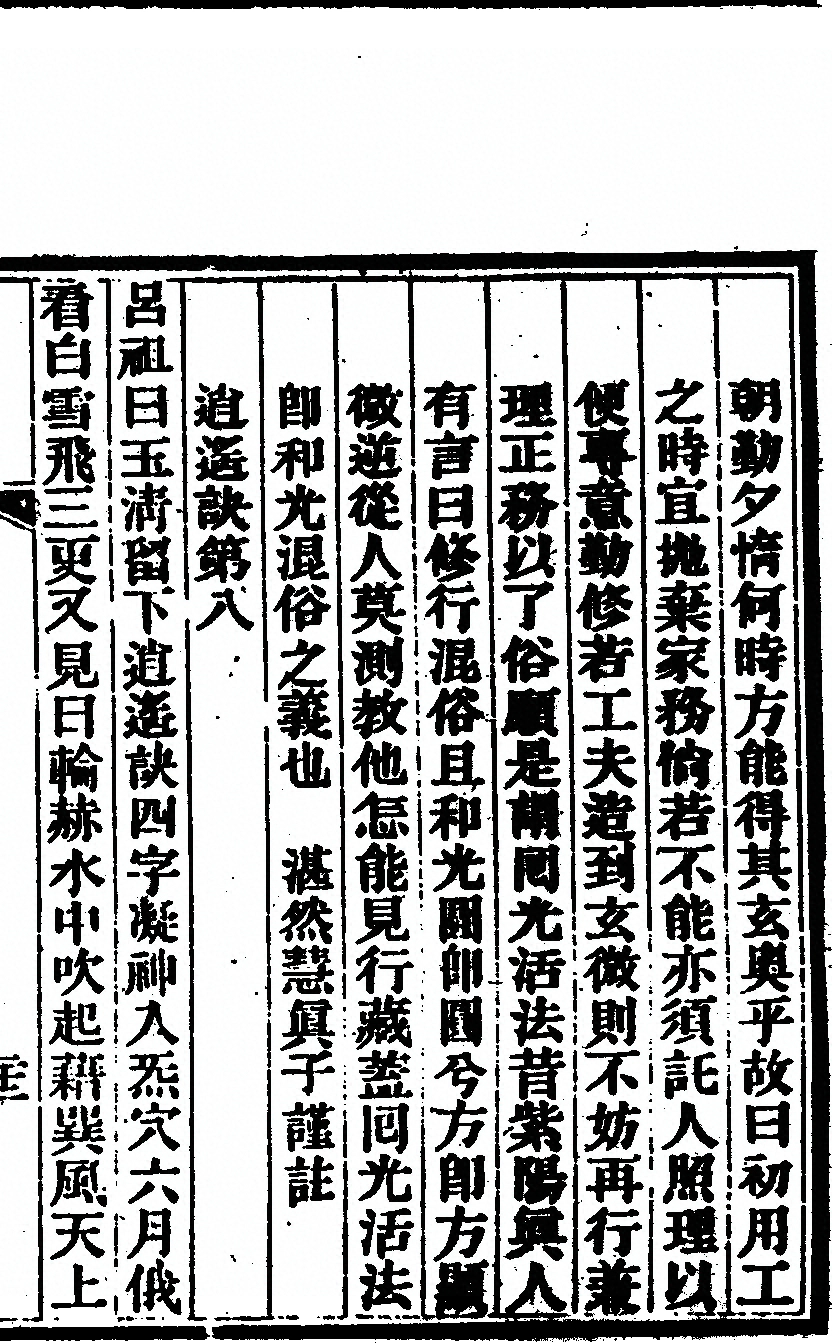 朝勤夕惰何時方能得其玄奧乎故曰初用工
之時宜拋棄家務倘若不能亦須託人照理以
便專意勤修若工夫造到玄微則不妨再行兼
理正務以了俗願是謂囘光活法昔紫陽眞人
有言曰修行混俗且和光圓卽圓兮方卽方顯
微逆從人莫測敎他怎能見行藏葢囘光活法
卽和光混俗之義也 湛然慧眞子謹註
逍遙訣第八
呂祖曰玉淸留下逍遙訣四字凝神入炁穴六月俄
看白雪飛三更又見日輪赫水中吹起藉巽風天上